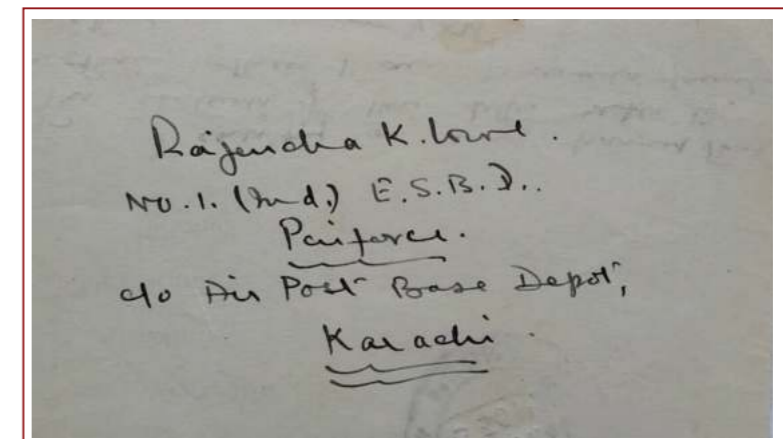 Rajendra K.
No. 1. (Ind.) E.S.B.D..
Paiforce.
c/o Air Post Base Depot,
Karachi.